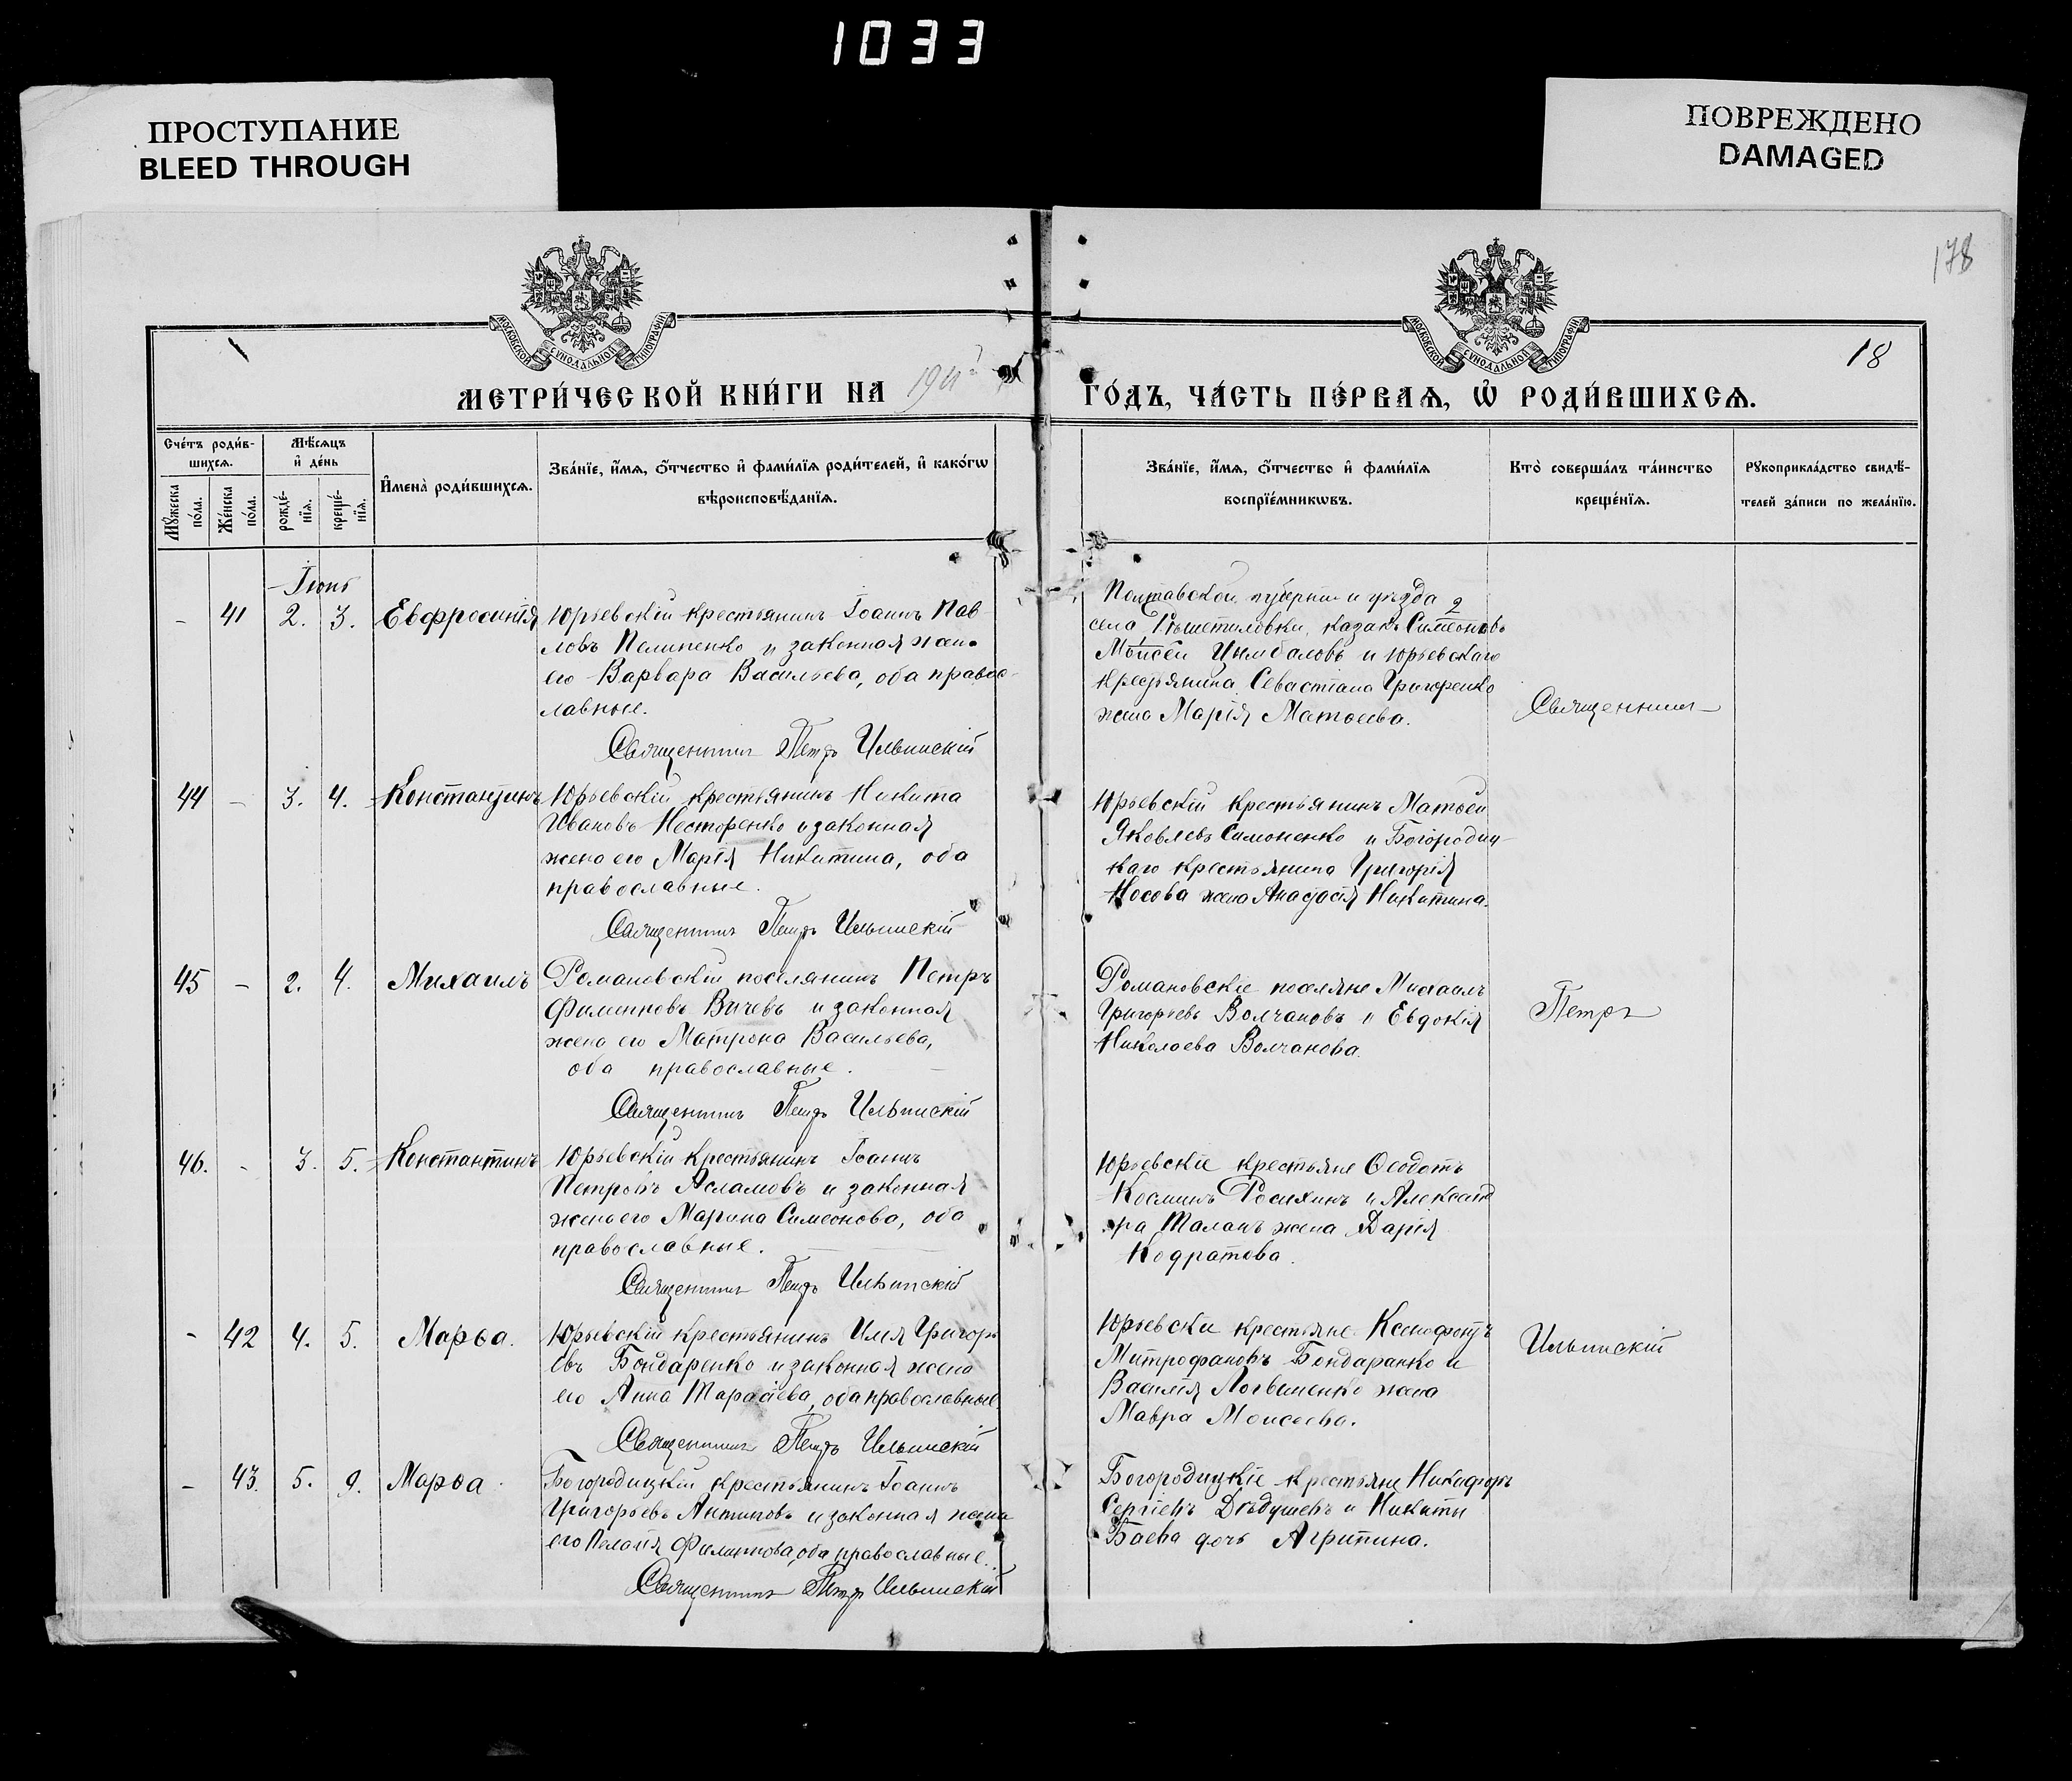 1033
ПРОСТУПАНИЕ
BLEED THROUGH
ПОВРЕЖДЕНО
DAMAGED
178
МОСКОВСКОЙ СѴНОДАЛЬНОЙ ТИПОГРАФІИ
МОСКОВСКОЙ СѴНОДАЛЬНОЙ ТИПОГРАФІИ
18
МЕТРИ́ЧЕСКОЙ КНИ́ГИ НА
ГО́ДЪ, ЧА́СТЬ ПЕ́РВАѦ, Ѡ҆ РОДИ́ВШИХСѦ.
Сче́тъ роди́в-
шихсѧ.
Мѣ́сѧцъ
и҆ де́нь
Мꙋ́жеска по́ла.
Же́нска по́ла.
рожде́-нїѧ.
креще́-нїѧ.
И҆мена̀ роди́вшихсѧ.
Зва́нїе, и҆́мѧ, ѻ҆́тчество и҆ фами́лїѧ роди́телей, и҆ како́гѡ
вѣроисповѣ́данїѧ.
Зва́нїе, и҆́мѧ, ѻ҆́тчество и҆ фами́лїѧ
воспрїе́мникѡвъ.
Кто̀ соверша́лъ та́инство
креще́нїѧ.
Рꙋкоприкла́дство свидѣ́-
телей за́писи по жела́нїю.
Іюнь
- 41 2. 3. Евфросинія
Юрьевскій крестьянинъ Іоаннъ Пав
ловъ Пелипенко и законная жена
его Варвара Васильева, оба правос-
лавные.
Священникъ Петръ Ильинскій
Полтавской губерніи и уѣзда
села Рѣшетиловки, казакъ Симеоновъ
Моисей Цымбаловъ и Юрьевскаго
крестьянина Севастіана Григоренко
жена Марія Матѳеева.
Священникъ
44 - 3. 4. Константинъ
Юрьевскій крестьянинъ Никита
Ивановъ Несторенко и законная
жена его Марія Никитина, оба
православные.
Священникъ Петръ Ильинскій
Юрьевскій крестьянинъ Матѳей
Яковлевъ Симоненко и Богородиц-
каго крестьянина Григорія
Носова жена Анастасія Никитина.
45 - 2. 4. Михаилъ
Романовскій поселянинъ Петръ
Филипповъ Вичевъ и законная
жена его Матрона Васильева,
оба православные.
Священникъ Петръ Ильинскій
Романовскіе поселяне Михаилъ
Григорьевъ Волчановъ и Евдокія
Николаева Волчанова.
Петръ
46. - 3. 5. Константинъ
Юрьевскій крестьянинъ Іоаннъ
Петровъ Асламовъ и законная
жена его Марина Симеонова, оба
православные.
Священникъ Петръ Ильинскій
Юрьевскіе крестьяне Ѳеодотъ
Косминъ и Александ
ра Таланъ жена Дарія
Кодратова.
- 42 4. 5. Марѳа.
Юрьевскій крестьянинъ Илія Григорь
евъ Бондаренко и законная жена
его Анна Тарасіева, оба православные.
Священникъ Петръ Ильинскій
Юрьевскіе крестьяне Ксенофонтъ
Митрофановъ Бондаранко и
Василія Логвиненко жена
Мавра Моисеева.
Ильинскій
- 43. 5. 9. Марѳа
Богородицкій крестьянинъ Іоаннъ
Григорьевъ Антиповъ и законная жена
его Пелагія Филиппова, оба православные.
Священникъ Петръ Ильинскій
Богородицкіе крестьяне Никифоръ
Сергіевъ Дѣдушевъ и Никиты
Баева дочь Агрипина.